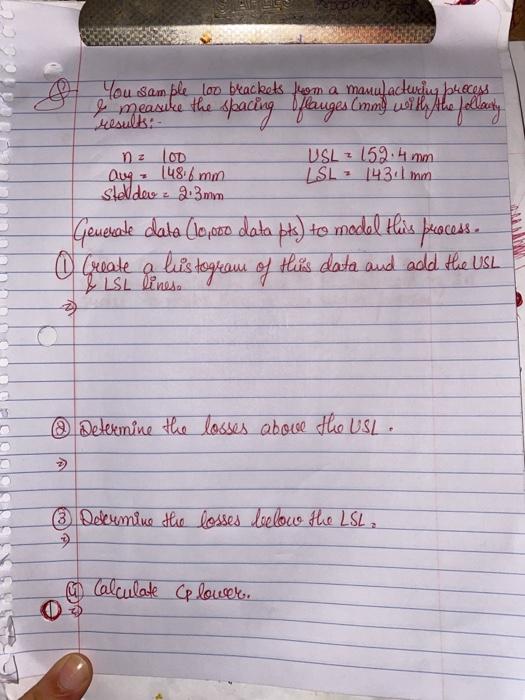 Q
You sample 100 brackets from a manufacturing process
& measure the spacing flanges (mm) with the following
results:-
n = 100 USL = 152.4 mm
avg = 148.6 mm LSL = 143.1 mm
Std dev = 2.3mm
Generate data (10,000 data pts) to model this process.
① Create a histogram of this data and add the USL
& LSL lines.
⇒
② Determine the losses above the USL.
⇒
③ Determine the losses below the LSL.
⇒
④ Calculate Cp lower.
⇒